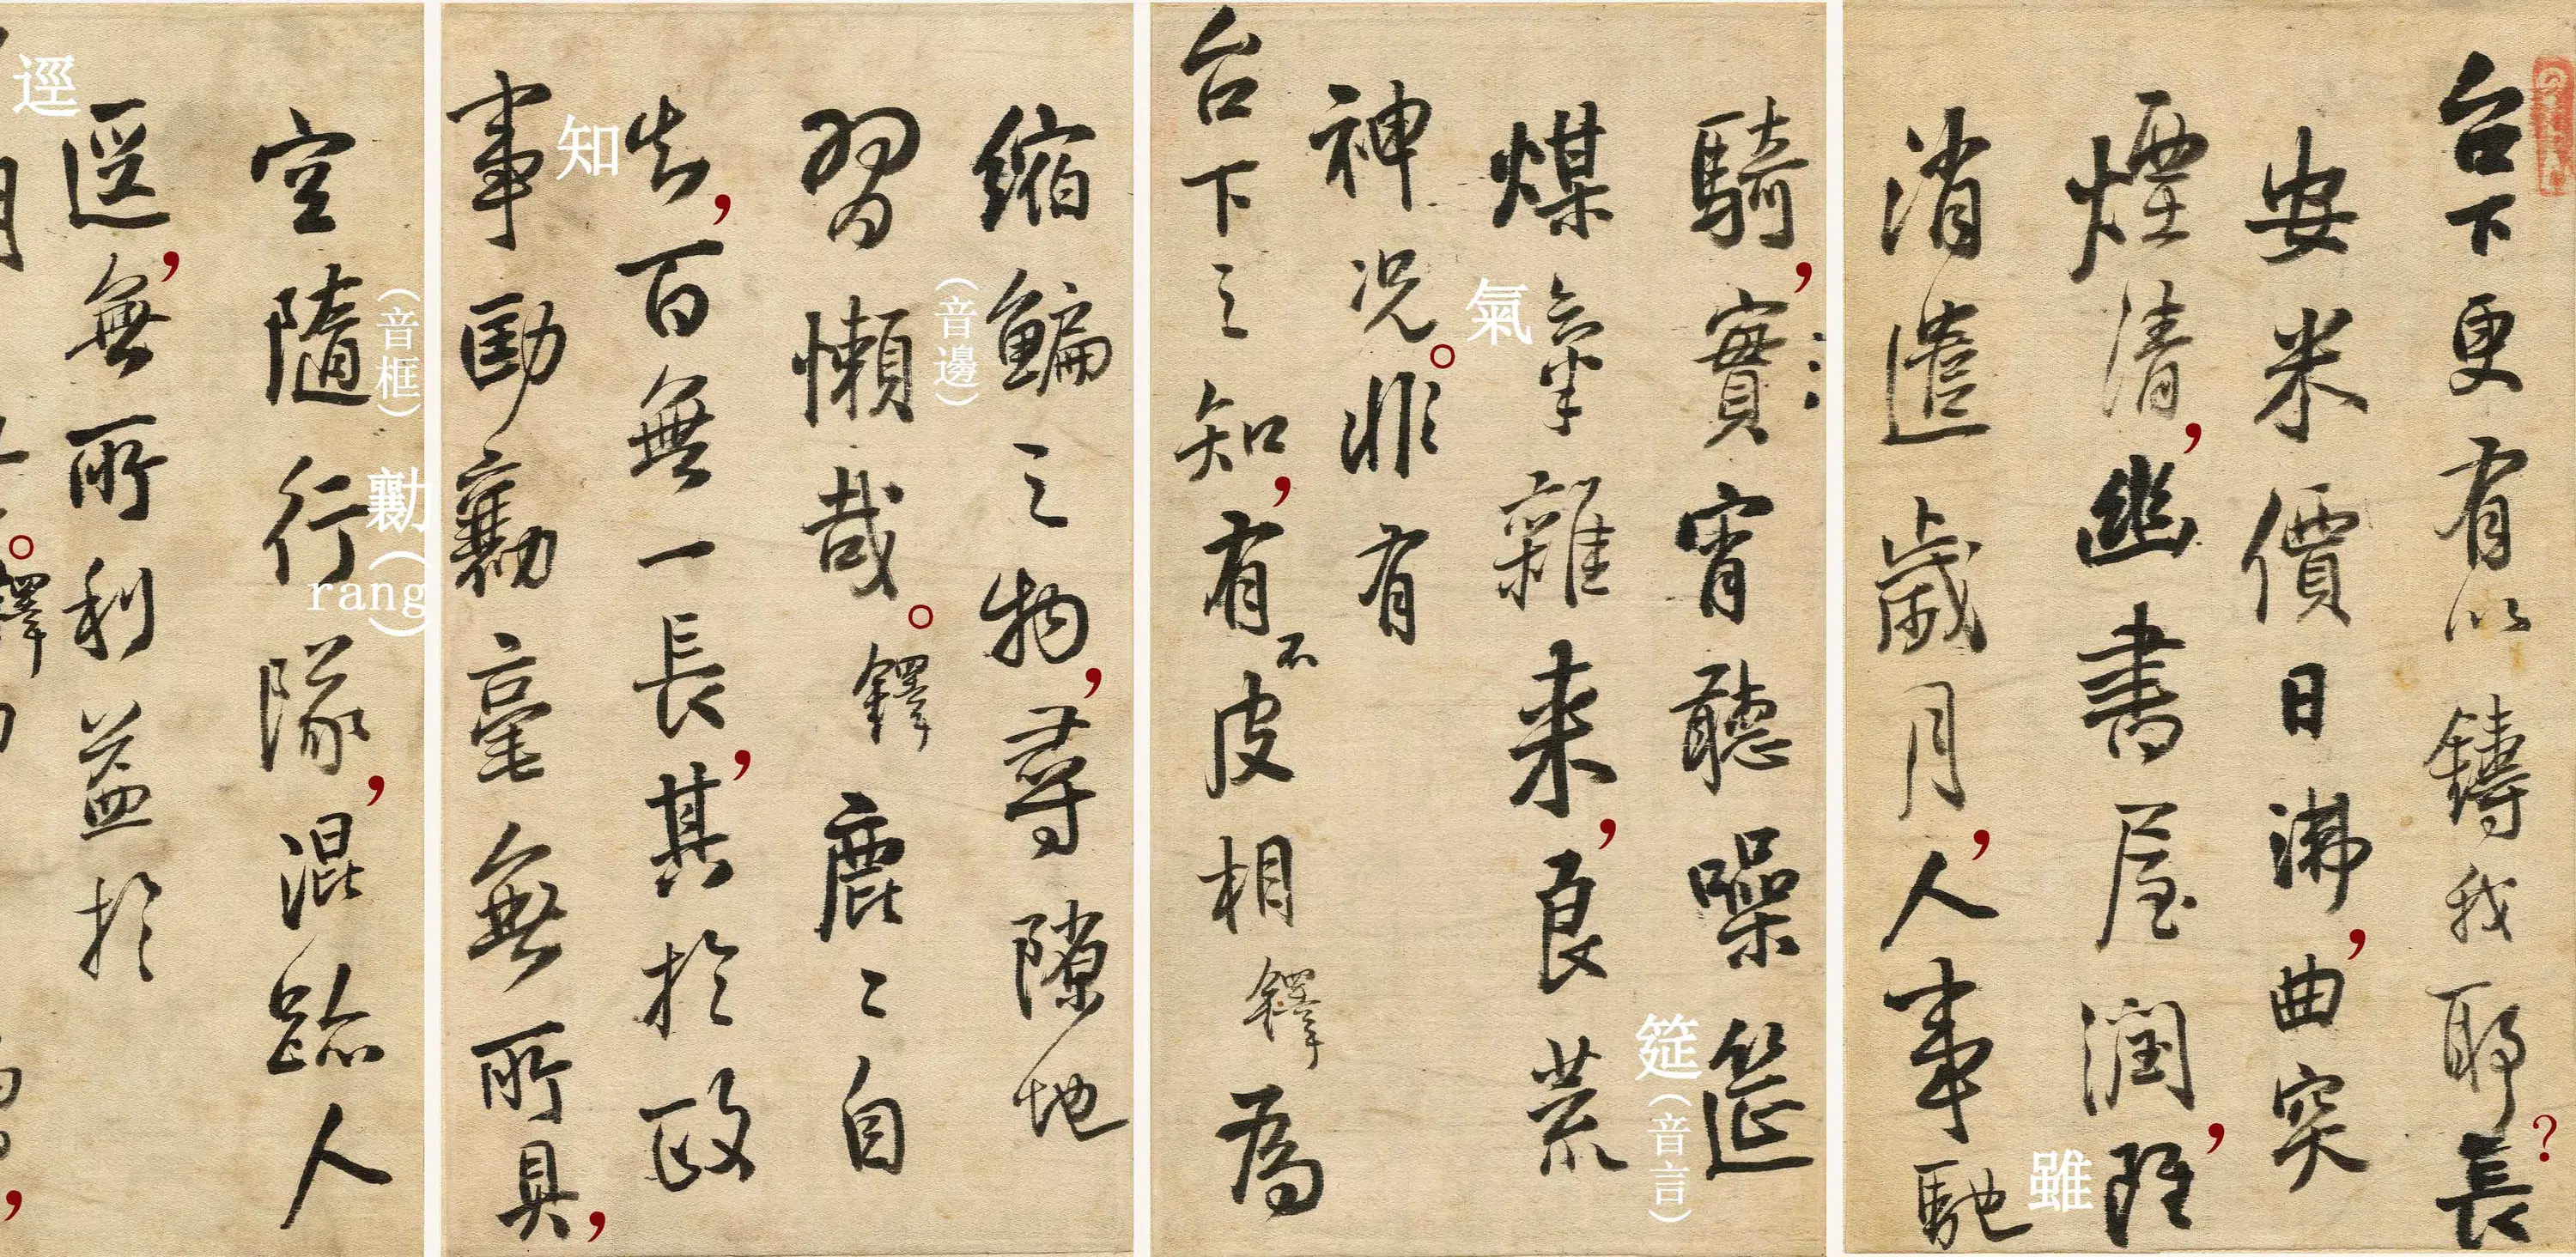 台下更有以鑄我耶?長
安米價日沸,曲突
煙清,幽書屋潤,雖
雖
消遣歲月,人事馳
騎,實宵聽噪筵
筵(音言)
煤氣雜来,良荒
氣
神况。非有
台下之知,有不皮相鐸為
縮鯿之物,尋隙地
(音邊)
習懶哉。鐸鹿〻自
知,百無一長,其於政
知
事劻勷毫無所具,
(音框)
勷(rang)
空隨行隊,混跡人
逕,無所利益於
逕